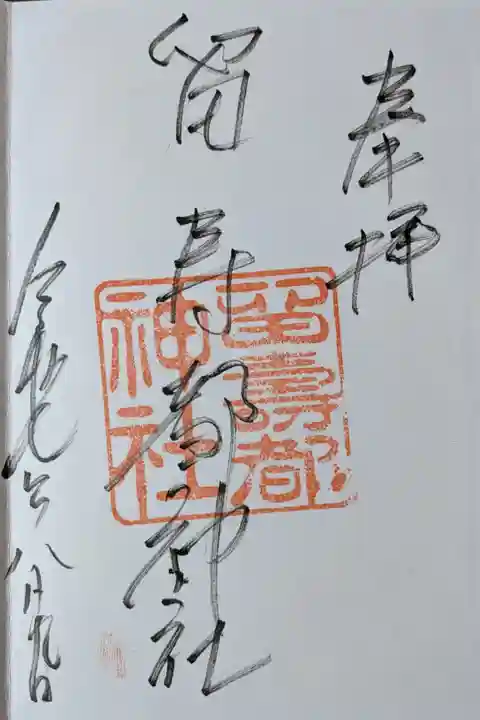 奉拝
留寿都神社
留壽都
神社
令和七年八月九日